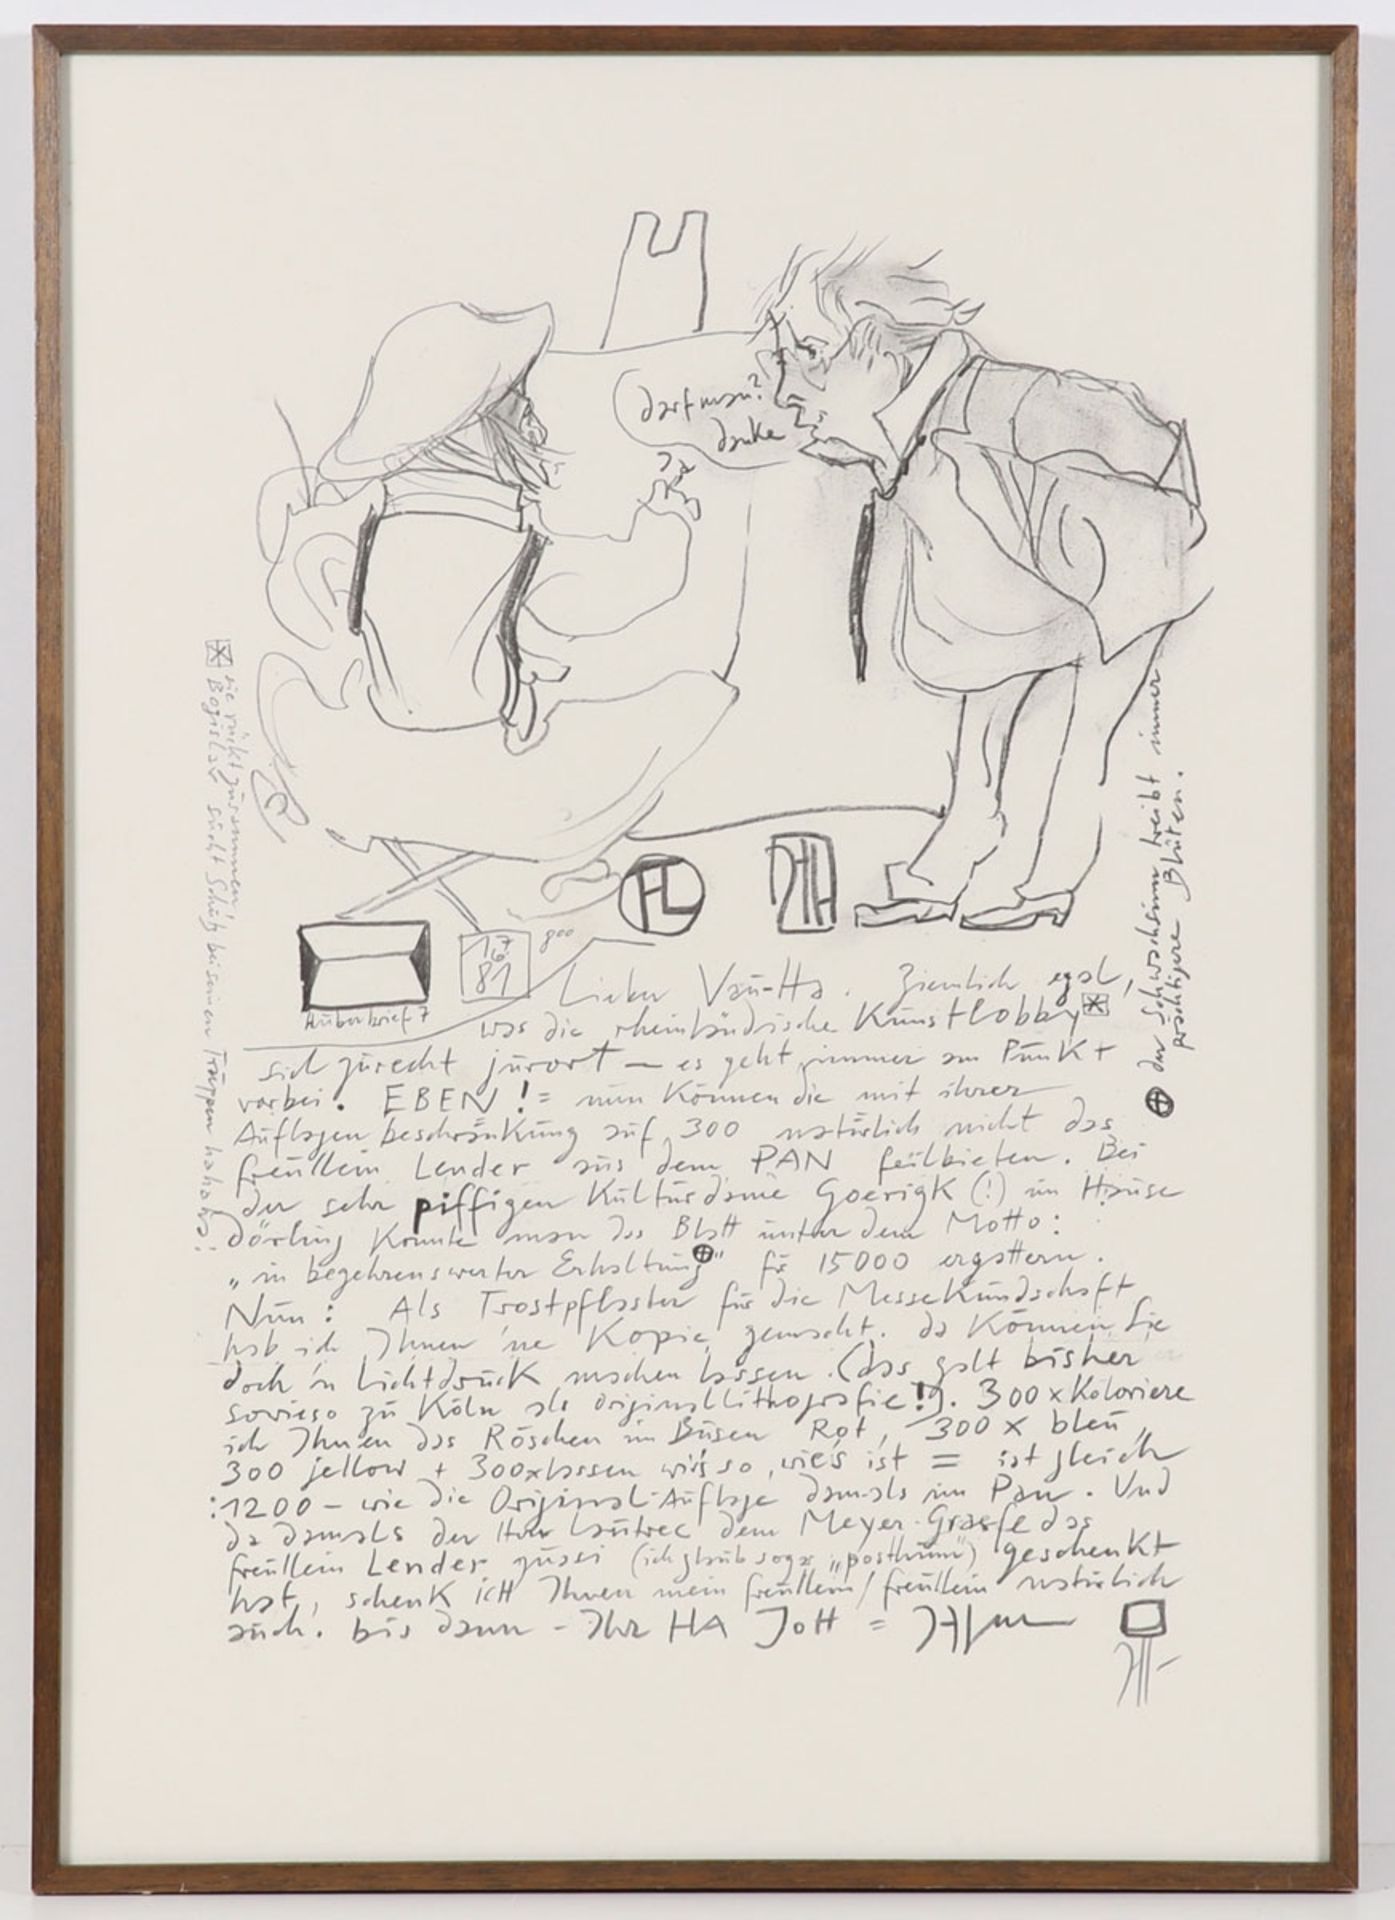 darf man?
danke
HL
16/7
81
Huberbrief 7
Lieber Vau-Ha. Ziemlich egal,
was die rheinländische Kunstlobby
sich zurecht juriert — es geht immer am Punkt
vorbei. EBEN! = nun können die mit ihrer
Auflagenbeschränkung auf 300 natürlich nicht das
freullein Lender aus dem PAN feilbieten. Bei
der sehr piffigen Kulturdame Goerigk (!) im Hause
dörling konnte man das Blatt unter dem Motto:
„in begehrenswerter Erhaltung" für 15000 ergattern.
Nun: Als Trostpflaster für die Messekundschaft
hab ich Ihnen 'ne Kopie gemacht. da können Sie
doch 'n Lichtdruck machen lassen. (das galt bisher
sowieso zu Köln als originallithografie!). 300 x koloriere
ich Ihnen das Röschen im Busen Rot, 300 x bleu,
300 jellow + 300x lassen wirs so, wie's ist = ist gleich
:1200 – wie die Original-Auflage damals im Pan. Und
da damals der Herr Lautrec dem Meyer-Graefe das
freullein Lender quasi (ich glaub sogar „posthum") geschenkt
hat, schenk icH Ihnen mein freullein/freullein natürlich
auch. bis dann – Ihr HA JoTT =
sie rückt zusammen
Bogislav sucht Schutz bei seinen Truppen hahaha!
der Schwachsinn treibt immer
prächtigere Blüten.